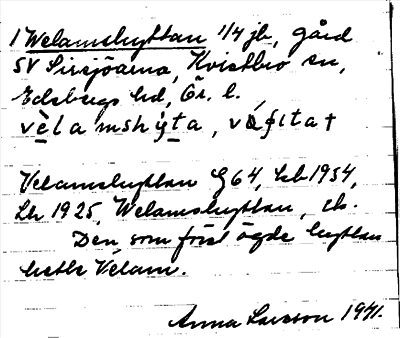 1 Welamshyttan 1/4 jb, gård
SV Sirsjöarna, Kvistbro sn,
Edsbergs hd, Ör. l.
vèlamshy̱ta, 
Velamshyttan G 64, Lb 1954,
Lb 1925, Welamshyttan, ib.
Den som först ägde hyttan
hette Velam.
Anna Larsson 1941.